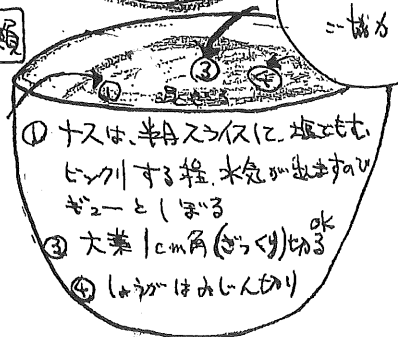 ご協力
③
④
① ナスは、半月スライスして、塩でもむ
ビックリする程、水気が出ますので
ギューとしぼる
③ 大葉 1cm角(ざっくり)切る OK
④ しょうがはみじん切り